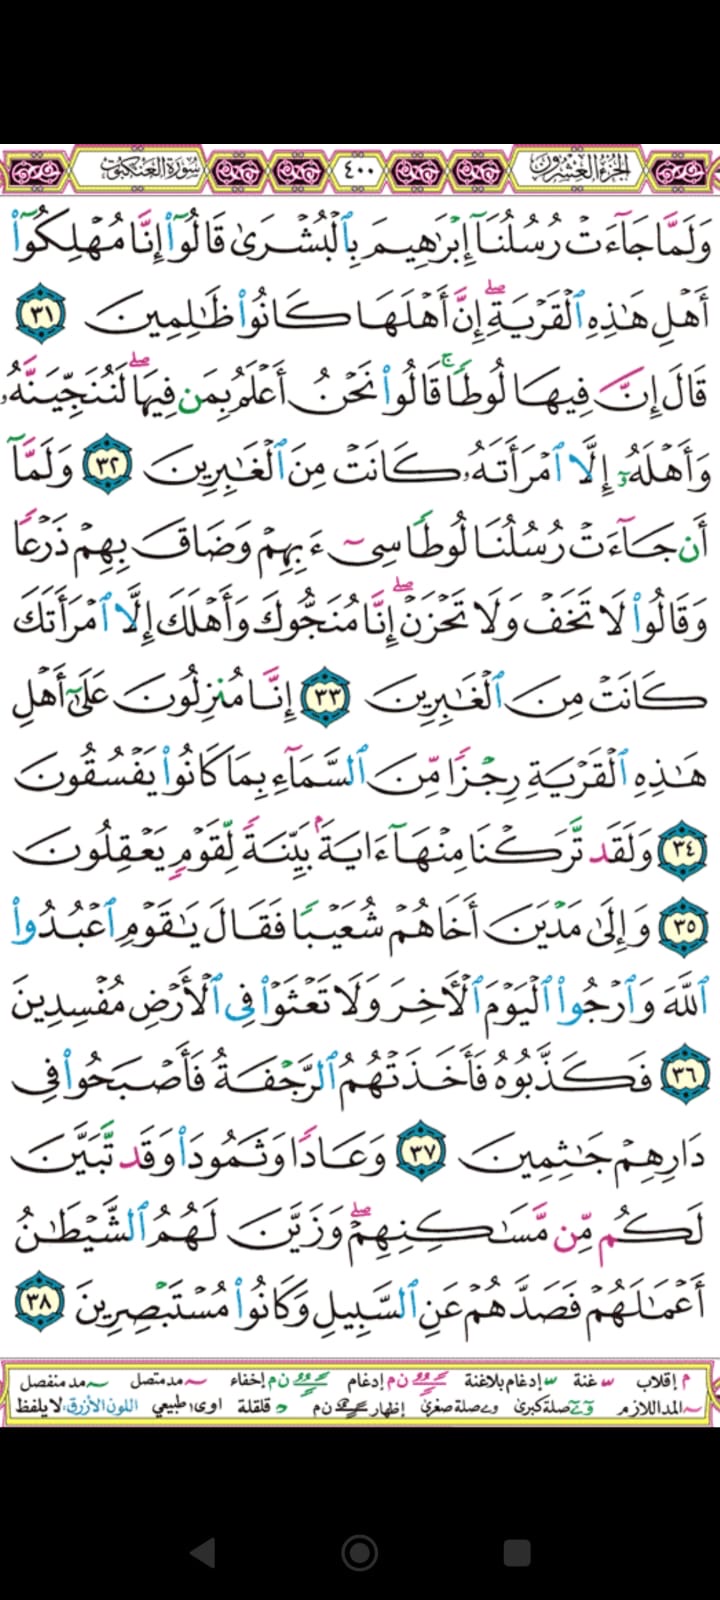 الجزء العشرون
٤٠٠
سورة العنكبوت
وَلَمَّا جَآءَتْ رُسُلُنَآ إِبْرَٰهِيمَ بِٱلْبُشْرَىٰ قَالُوٓا۟ إِنَّا مُهْلِكُوٓا۟
أَهْلِ هَٰذِهِ ٱلْقَرْيَةِۖ إِنَّ أَهْلَهَا كَانُوا۟ ظَٰلِمِينَ ٣١
قَالَ إِنَّ فِيهَا لُوطًاۚ قَالُوا۟ نَحْنُ أَعْلَمُ بِمَن فِيهَاۖ لَنُنَجِّيَنَّهُۥ
وَأَهْلَهُۥٓ إِلَّا ٱمْرَأَتَهُۥ كَانَتْ مِنَ ٱلْغَٰبِرِينَ ٣٢ وَلَمَّآ
أَن جَآءَتْ رُسُلُنَا لُوطًا سِىٓءَ بِهِمْ وَضَاقَ بِهِمْ ذَرْعًا
وَقَالُوا۟ لَا تَخَفْ وَلَا تَحْزَنْۖ إِنَّا مُنَجُّوكَ وَأَهْلَكَ إِلَّا ٱمْرَأَتَكَ
كَانَتْ مِنَ ٱلْغَٰبِرِينَ ٣٣ إِنَّا مُنزِلُونَ عَلَىٰٓ أَهْلِ
هَٰذِهِ ٱلْقَرْيَةِ رِجْزًا مِّنَ ٱلسَّمَآءِ بِمَا كَانُوا۟ يَفْسُقُونَ
٣٤ وَلَقَد تَّرَكْنَا مِنْهَآ ءَايَةًۢ بَيِّنَةً لِّقَوْمٍ يَعْقِلُونَ
٣٥ وَإِلَىٰ مَدْيَنَ أَخَاهُمْ شُعَيْبًا فَقَالَ يَٰقَوْمِ ٱعْبُدُوا۟
ٱللَّهَ وَٱرْجُوا۟ ٱلْيَوْمَ ٱلْءَاخِرَ وَلَا تَعْثَوْا۟ فِى ٱلْأَرْضِ مُفْسِدِينَ
٣٦ فَكَذَّبُوهُ فَأَخَذَتْهُمُ ٱلرَّجْفَةُ فَأَصْبَحُوا۟ فِى
دَارِهِمْ جَٰثِمِينَ ٣٧ وَعَادًا وَثَمُودَا۟ وَقَد تَّبَيَّنَ
لَكُم مِّن مَّسَٰكِنِهِمْۖ وَزَيَّنَ لَهُمُ ٱلشَّيْطَٰنُ
أَعْمَٰلَهُمْ فَصَدَّهُمْ عَنِ ٱلسَّبِيلِ وَكَانُوا۟ مُسْتَبْصِرِينَ ٣٨
م إقلاب غنة إدغام بلاغنة ن م إدغام ن م إخفاء مد متصل مد منفصل
المد اللازم صلة كبرى صلة صغرى إظهار ن م قلقلة اوى طبيعي اللون الأزرق: لا يلفظ